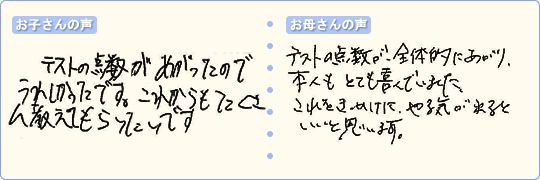 お子さんの声
テストの点数があがったので
うれしかったです。これからもたくさ
ん教えてもらいたいです
お母さんの声
テストの点数が全体的にあがり、
本人もとても喜んでいました。
これをきっかけに、やる気が出ると
いいと思います。